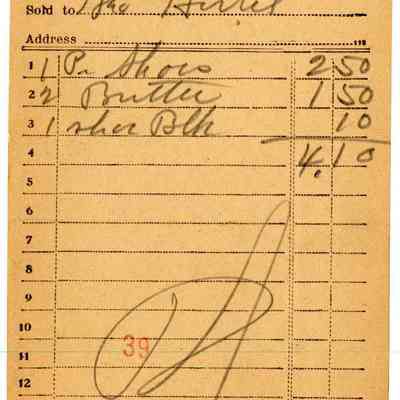 Sold to
Address
1 1 Pr Shoes 2 50
2 2 Butter 1 50
3 1 shoe Blk 10
4 4.10
5
6
7
8
9
10
39
11
12